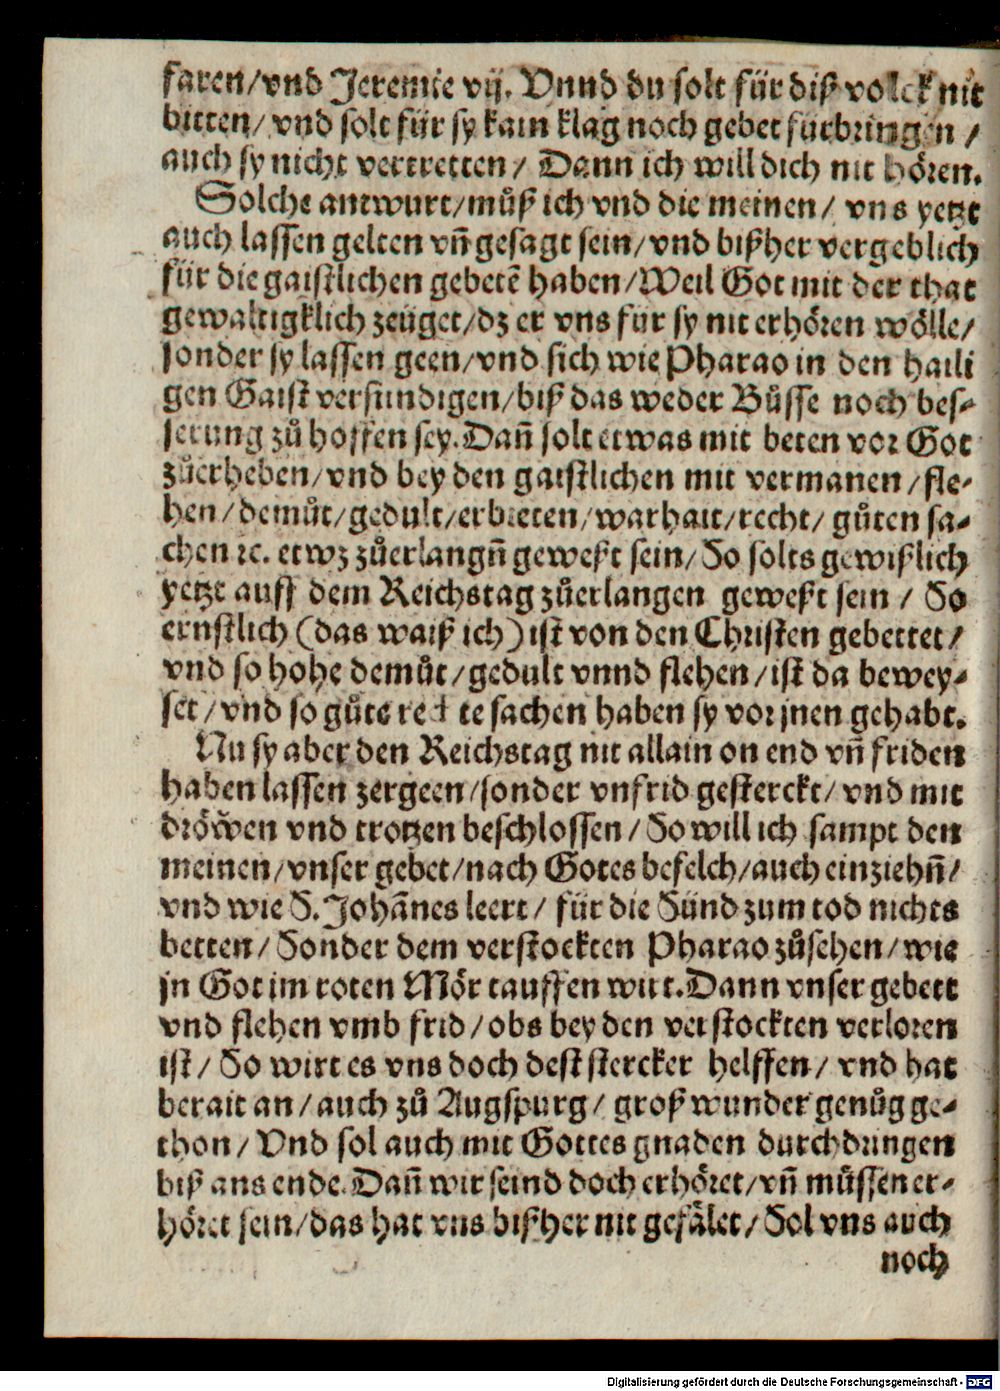 faren/vnd Jeremie vij. Vnnd du solt für diß volck nit
bitten/ vnd solt für sy kain klag noch gebet fürbringen /
auch sy nicht vertretten/ Dann ich will dich nit hören.
Solche antwurt/můß ich vnd die meinen/ vns yetzt
auch lassen gelten vñ gesagt sein/vnd bißher vergeblich
für die gaistlichen gebetẽ haben/Weil Got mit der that
gewaltigklich zeüget/dz er vns für sy nit erhören wölle/
sonder sy lassen geen/vnd sich wie Pharao in den haili
gen Gaist versündigen/biß das weder Bůsse noch bes-
serung zů hoffen sey. Dañ solt etwas mit beten vor Got
zůerheben/vnd bey den gaistlichen mit vermanen/fle-
hen/demůt/gedult/erbieten/warhait/recht/ gůten sa-
chen ꝛc. etwz zůerlangñ geweßt sein/So solts gewißlich
yetzt auff dem Reichstag zůerlangen geweßt sein / So
ernstlich (das waiß ich) ist von den Christen gebettet/
vnd so hohe demůt/gedult vnnd flehen/ist da bewey-
set/vnd so gůte rechte sachen haben sy vor jnen gehabt.
Nu sy aber den Reichstag nit allain on end vñ friden
haben lassen zergeen/sonder vnfrid gesterckt/vnd mit
dröwen vnd trotzen beschlossen/So will ich sampt den
meinen/vnser gebet/nach Gotes befelch/auch einziehñ/
vnd wie S. Johãnes leert/ für die Sünd zum tod nichts
betten/Sonder dem verstockten Pharao zůsehen/wie
jn Got im roten Mör tauffen wirt. Dann vnser gebett
vnd flehen vmb frid/obs bey den verstockten verloren
ist/ So wirt es vns doch dest stercker helffen/ vnd hat
berait an/auch zů Augspurg/ groß wunder genůg ge-
thon/ Vnd sol auch mit Gottes gnaden durchdringen
biß ans ende. Dañ wir seind doch erhöret/vñ můssen er-
höret sein/das hat vns bißher nit gefälet/Sol vns auch
noch
Digitalisierung gefördert durch die Deutsche Forschungsgemeinschaft - DFG